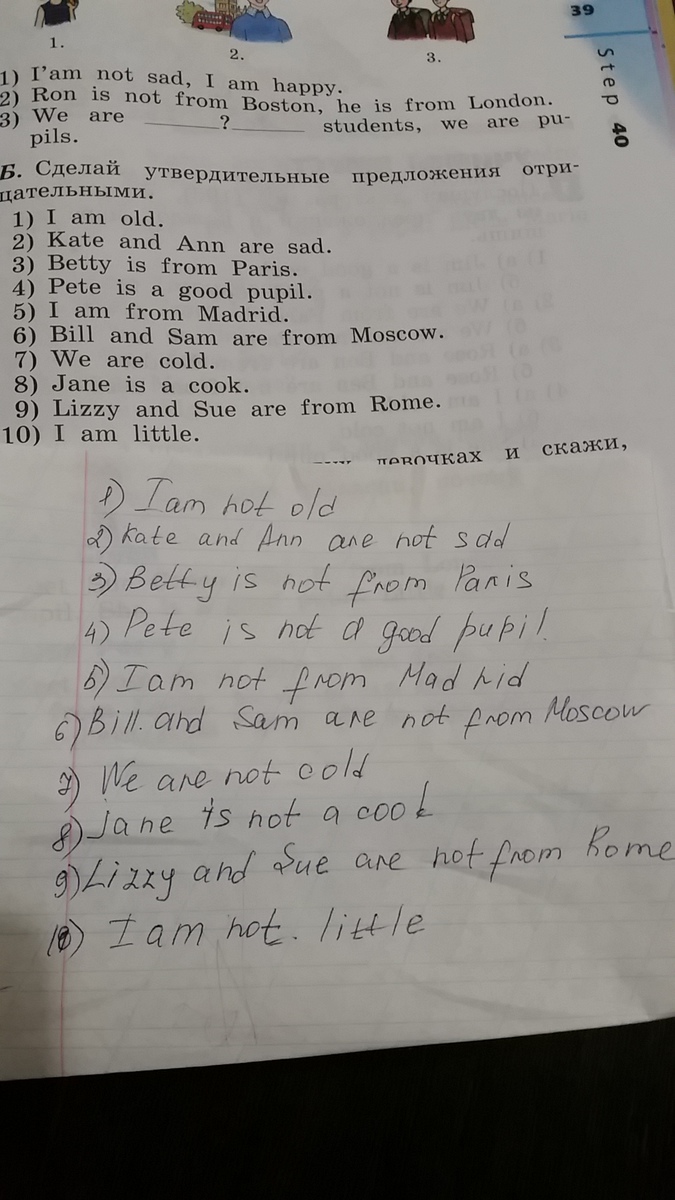 39
Step 40
1. 2. 3.
1) I'am not sad, I am happy.
2) Ron is not from Boston, he is from London.
3) We are ______?______ students, we are pu-
pils.
Б. Сделай утвердительные предложения отри-
цательными.
1) I am old.
2) Kate and Ann are sad.
3) Betty is from Paris.
4) Pete is a good pupil.
5) I am from Madrid.
6) Bill and Sam are from Moscow.
7) We are cold.
8) Jane is a cook.
9) Lizzy and Sue are from Rome.
10) I am little.
девочках и скажи,
1) I am not old
2) Kate and Ann are not sad
3) Betty is not from Paris
4) Pete is not a good pupil.
5) I am not from Madrid
6) Bill. and Sam are not from Moscow
7) We are not cold
8) Jane is not a cook
9) Lizzy and Sue are not from Rome
10) I am not. little